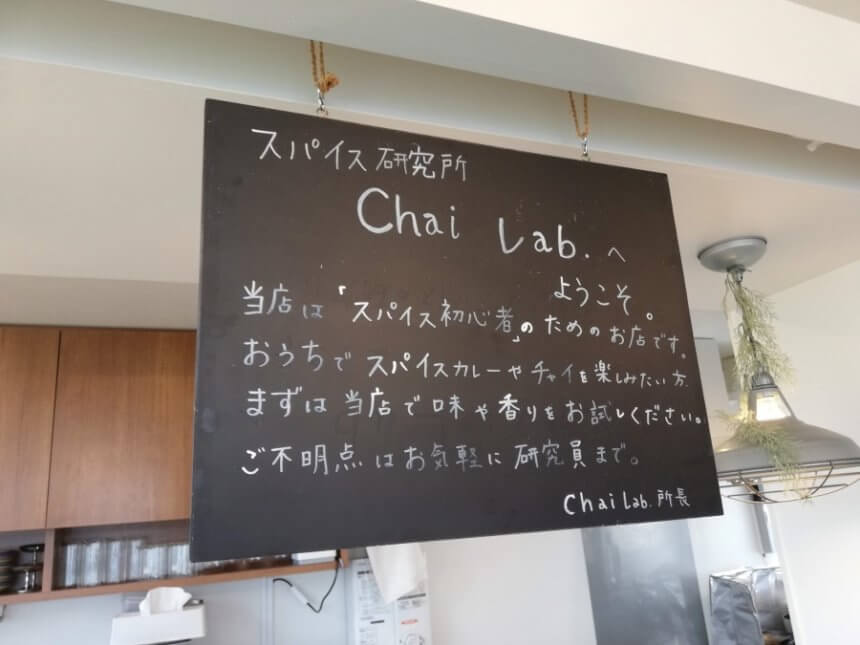 スパイス研究所
Chai Lab. へ
ようこそ。
当店は「スパイス初心者」のためのお店です。
おうちでスパイスカレーやチャイを楽しみたい方
まずは当店で味や香りをお試しください。
ご不明点はお気軽に研究員まで。
Chai Lab. 所長